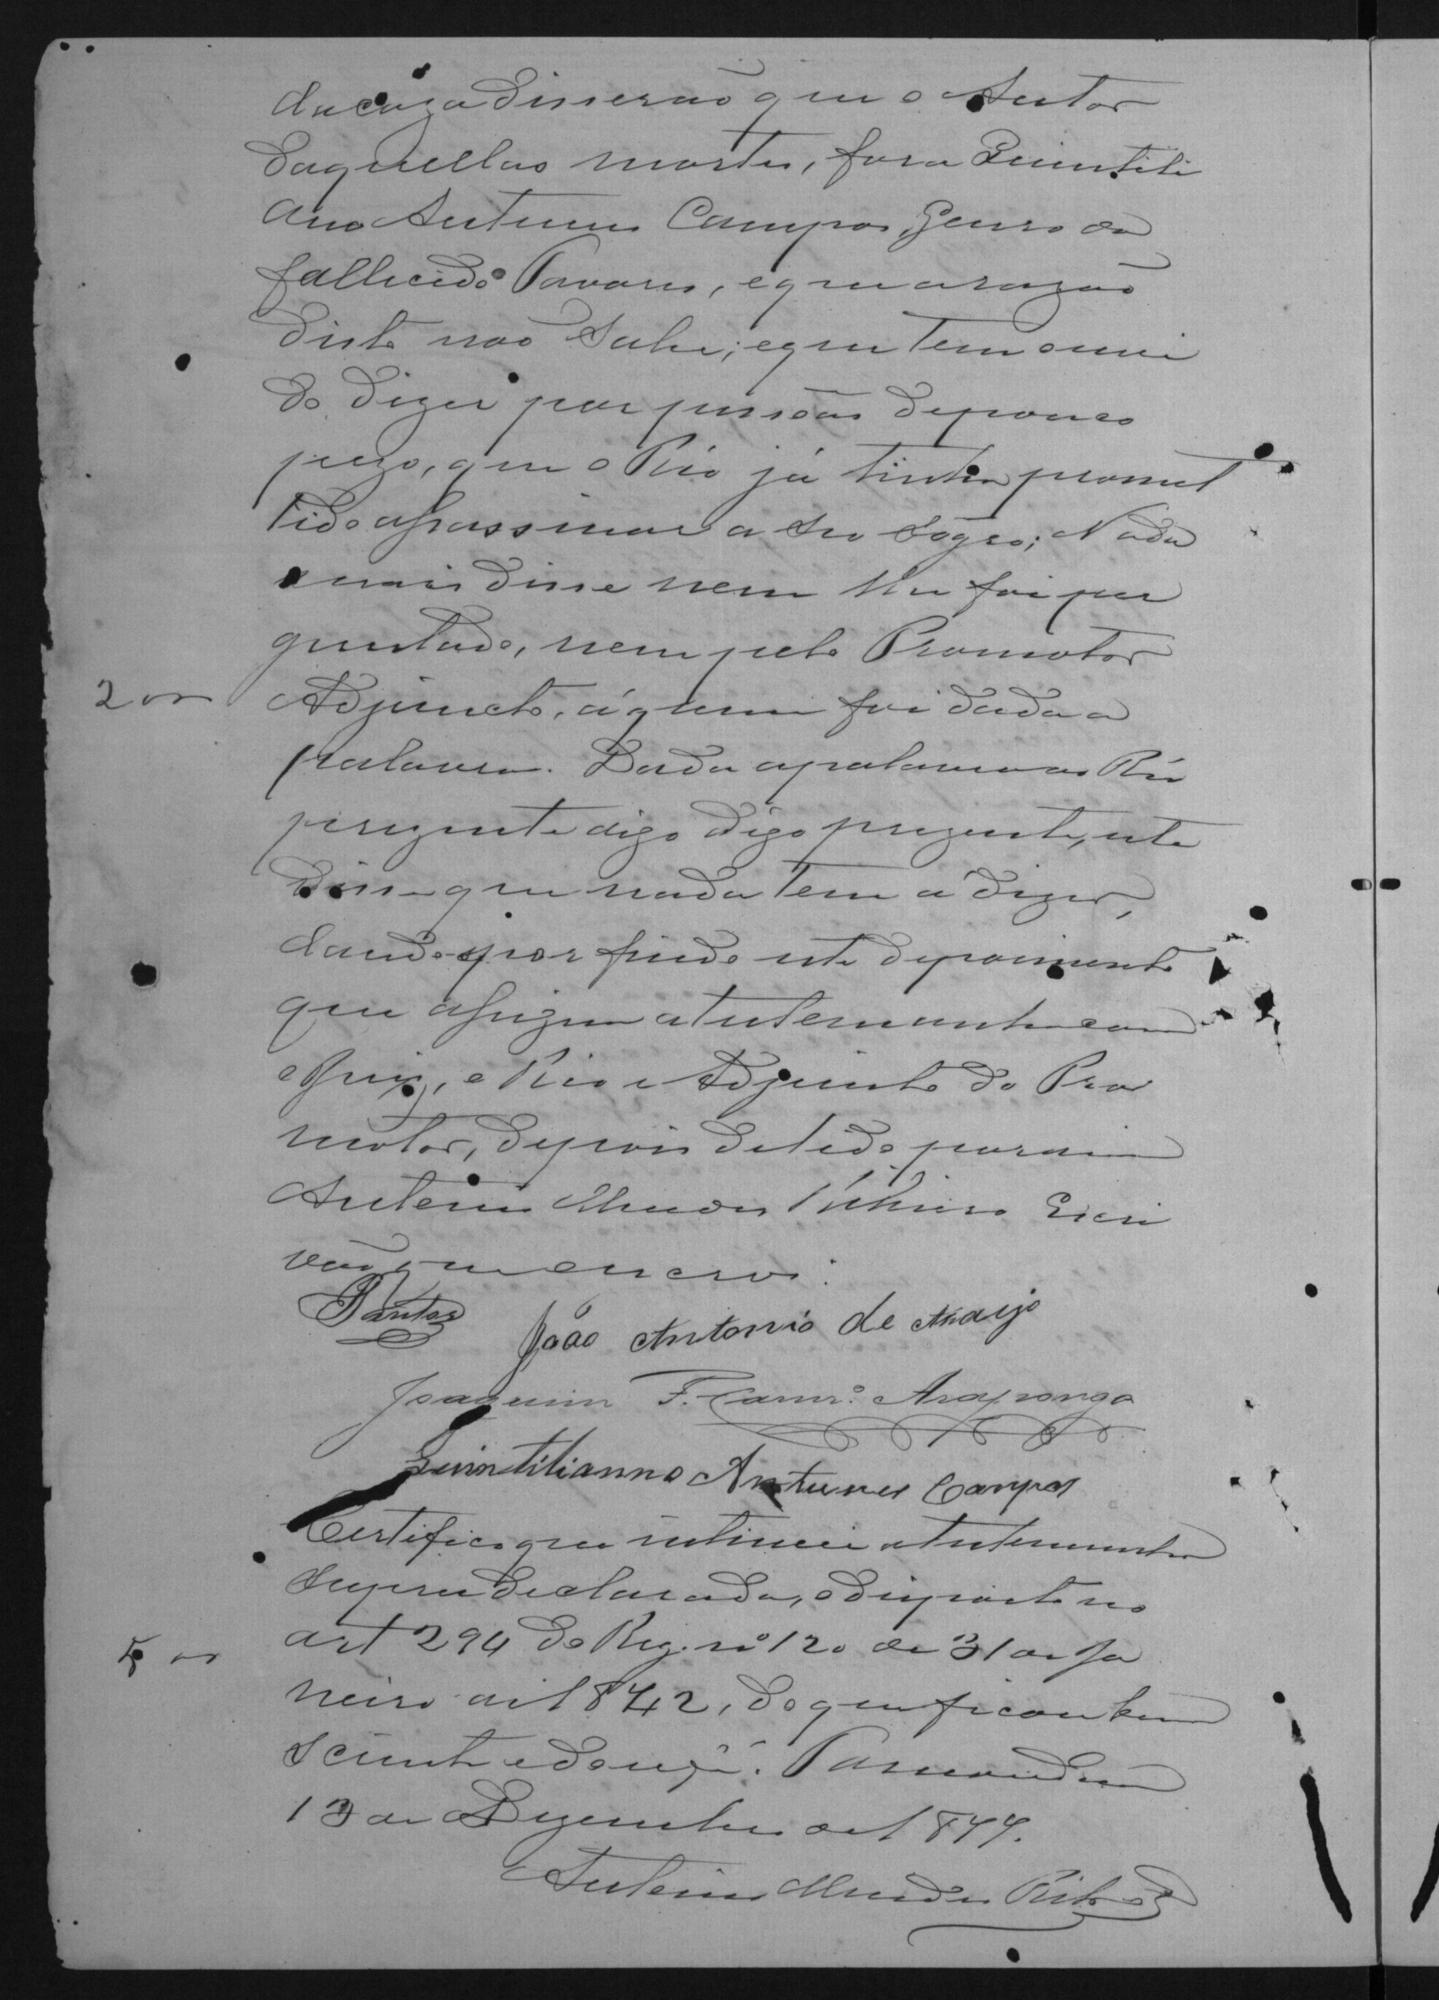 da caza disserão que o Autor
daquellas mortes, fora Quintili
ano Antunes Campos, Genro do
fallecido Tavares, e que a razão
disto não sabe; e que tem ouvi
do dizer por pessôas de pouco
pezo, que o Réo já tinha promet
tido assassinar a seo Sogro; Nada
mais disse nem lhe foi per
guntado, nem pelo Promotor
2 00
Adjuncto, á quem foi dada a
palavra. Dada a palavra ao Réo
prezente digo digo prezente, este
disse que nada tem á dizer,
dando-se por findo este depoimento
que assigna a testemunha com
o Juiz, o Réo e Adjunto do Pro
motor, depois de lido por mim
Antonio Mendes Ribeiro Escri
vão que escrevi.
Santos
João Antonio de Araujo
Joaquim F. Carnr.º Araponga
Quintilianno Antunes Campos
Certifico que intimei a testemunha
supra declarada, o disposto no
art 294 do Reg. nº 120 de 31 de Ja
5 00
neiro de 1842, do que ficou bem
sciente e dou fé.
13 de Dezembro de 1877.
Antonio Mendes Ribrº